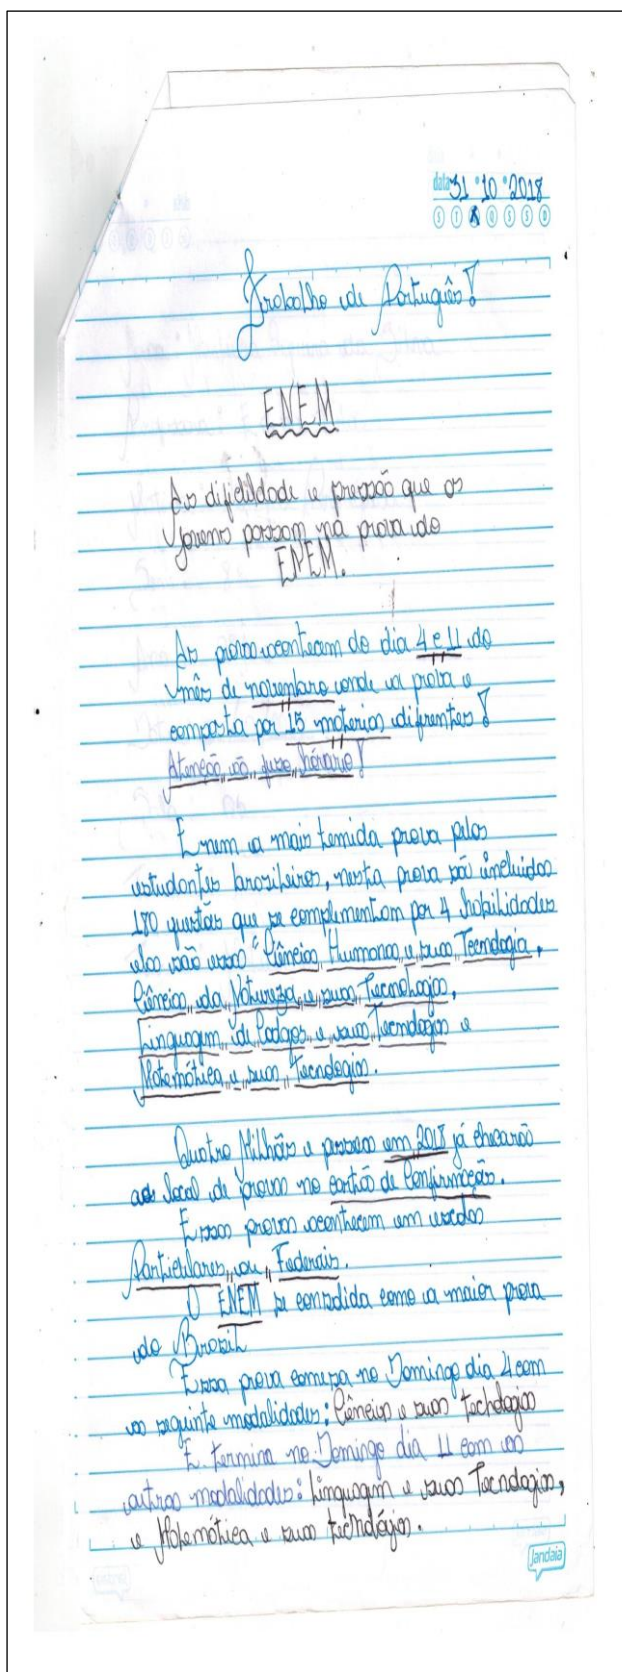 data 31 · 10 · 2018
S T Q Q S S D
Trabalho de Português!
ENEM
As dificildade e pressão que os
jovens passam na prova do
ENEM.
As prova acontecem do dia 4 e 11 do
mês de novembro onde a prova e
composta por 15 materias diferentes!
Atenção ao fuso hórario!
Enem a mais temida prova pelos
estudantes brasileiros, nesta prova são incluidas
180 questões que se complementam por 4 habilidades
elas são essas "Ciências Humanas e suas Tecnologia,
Ciências da Natureza e suas Tecnologias,
Linguagem de Codgos e suas Tecnologias e
Matemática e suas Tecnologias.
Quatro Milhões e pessoas em 2018 já checarão
aos local de provas no cartão de Confirmação.
Essas provas acontecem em escolas
Particulares ou Federais.
O ENEM se consolida como a maior prova
do Brasil
Essa prova começa no Domingo dia 4 com
as seguinte modalidades: Ciências e suas techologias
E termina no Domingo dia 11 com as
outras modalidades: Linguagem e suas Tecnologias,
e Matemática e suas technológias.
jandaia